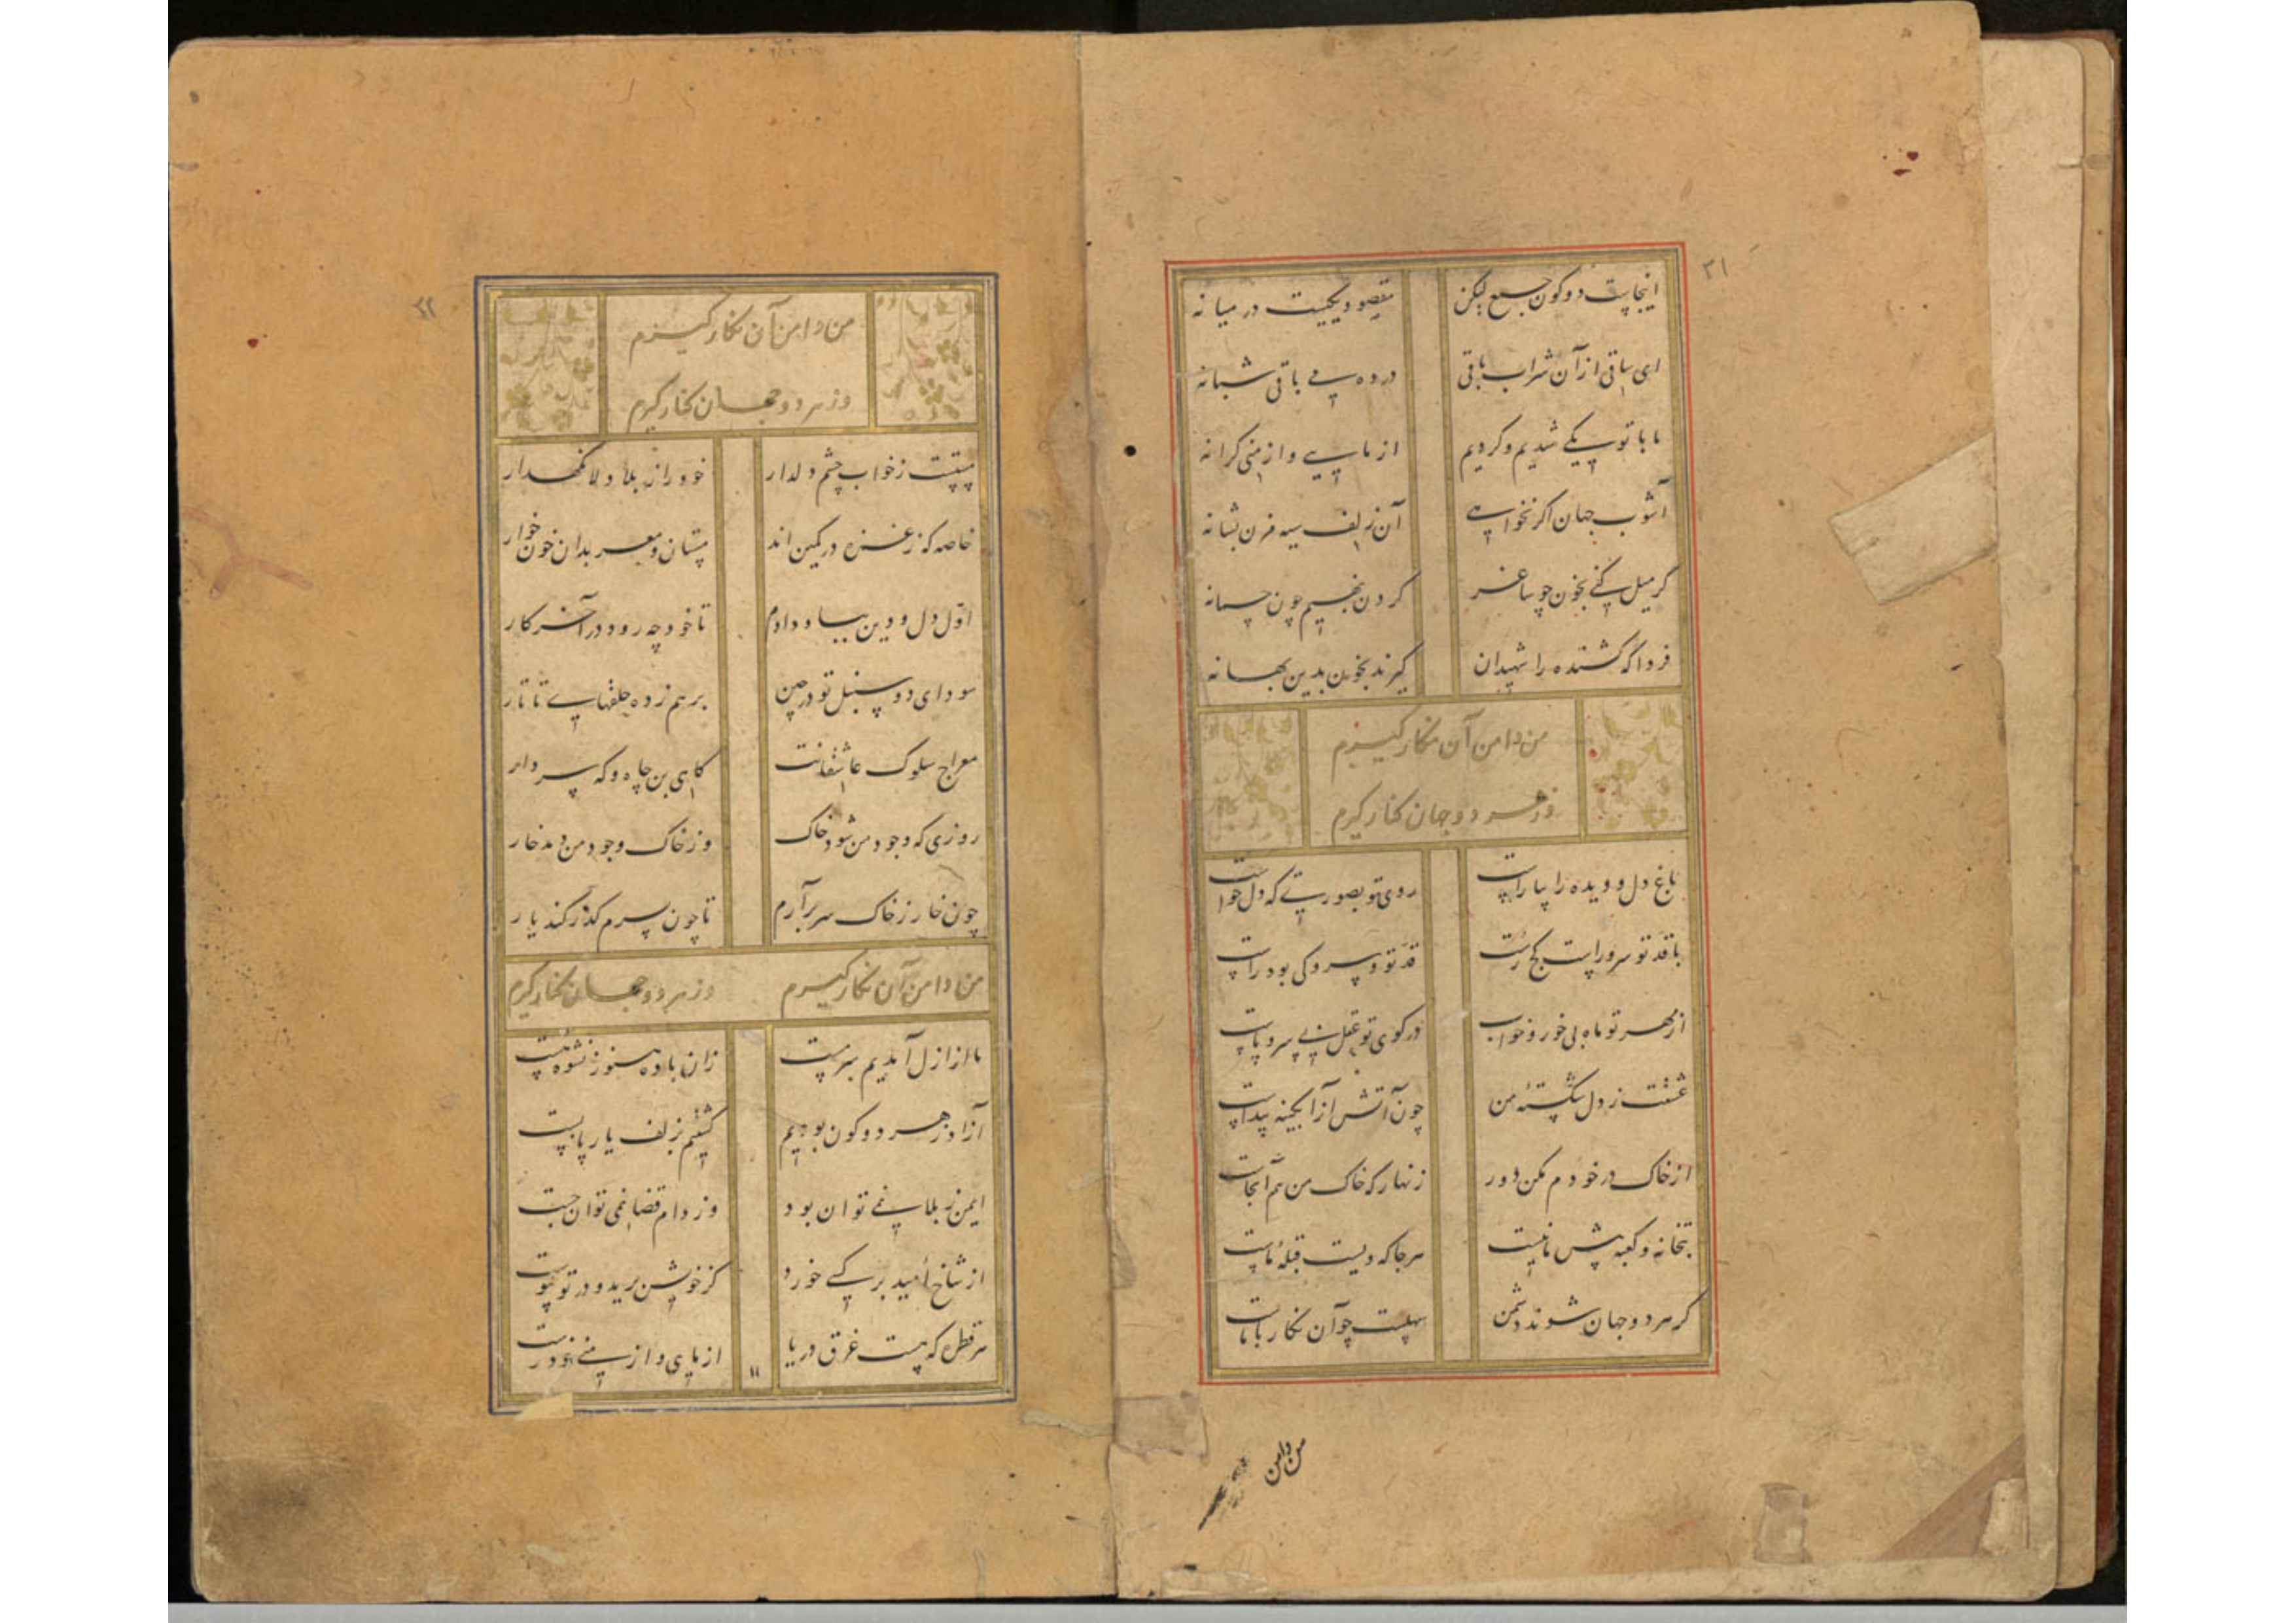 ۲۱
اینجاست دو کون جمع لیکن مقصود یکیست در میانه
ای ساقی از آن شراب باقی در ده می باقی شبانه
ما با تو یکی شدیم و کردیم از مایی و از منی کرانه
آشوب جهان اگر نخواهی آن زلف سیه مزن بشانه
گر میل کنی بخون چو ساغر گردن بنهیم چون چمانه
فردا که کشنده را شهیدان گیرند بخون بدین بهانه
من دامن آن نگار گیرم
وز هر دو جهان کنار گیرم
باغ دل و دیده را بیاراست روی تو بصورتی که دل خواست
با قد تو سرو راست کج رست قد تو و سرو کی بود راست
از مهر تو ماه بی خور و خواب در کوی تو عقل بی سر و پاست
عشقت ز دل شکستهٔ من چون آتش از آبگینه پیداست
از خاک در خودم مکن دور زنهار که خاک من هم آنجاست
بتخانه و کعبه پیش ما نیست هر جا که ویست قبلهٔ ماست
گر هر دو جهان شوند دشمن سهلست چو آن نگار با ماست
من دامن
۲۲
من دامن آن نگار گیرم
وز هر دو جهان کنار گیرم
مستست ز خواب چشم دلدار خود را ز بلا دلا نگهدار
خاصه که ز غمزه در کمین اند مستان و معربدان خون خوار
اوّل دل و دین بباد دادم تا خود چه رود در آخر کار
سودای دو سنبل تو در چین بر هم زده حلقهای تاتار
معراج سلوک عاشقانت گاهی بن چاه و گه سر دار
روزی که وجود من شود خاک وز خاک وجود من دمد خار
چون خار ز خاک سر برآرم تا چون بسرم گذر کند یار
من دامن آن نگار گیرم وز هر دو جهان کنار گیرم
ما از ازل آمدیم سرمست زان باده هنوز نشوه هست
آزاد ز هر دو کون بودیم گشتیم بزلف یار پابست
ایمن ز بلا نمی توان بود وز دام قضا نمی توان جست
از شاخ امید بر کسی خورد کز خویش برید و در تو پیوست
هر قطره که هست غرق دریا از مایی و از منی خود رست